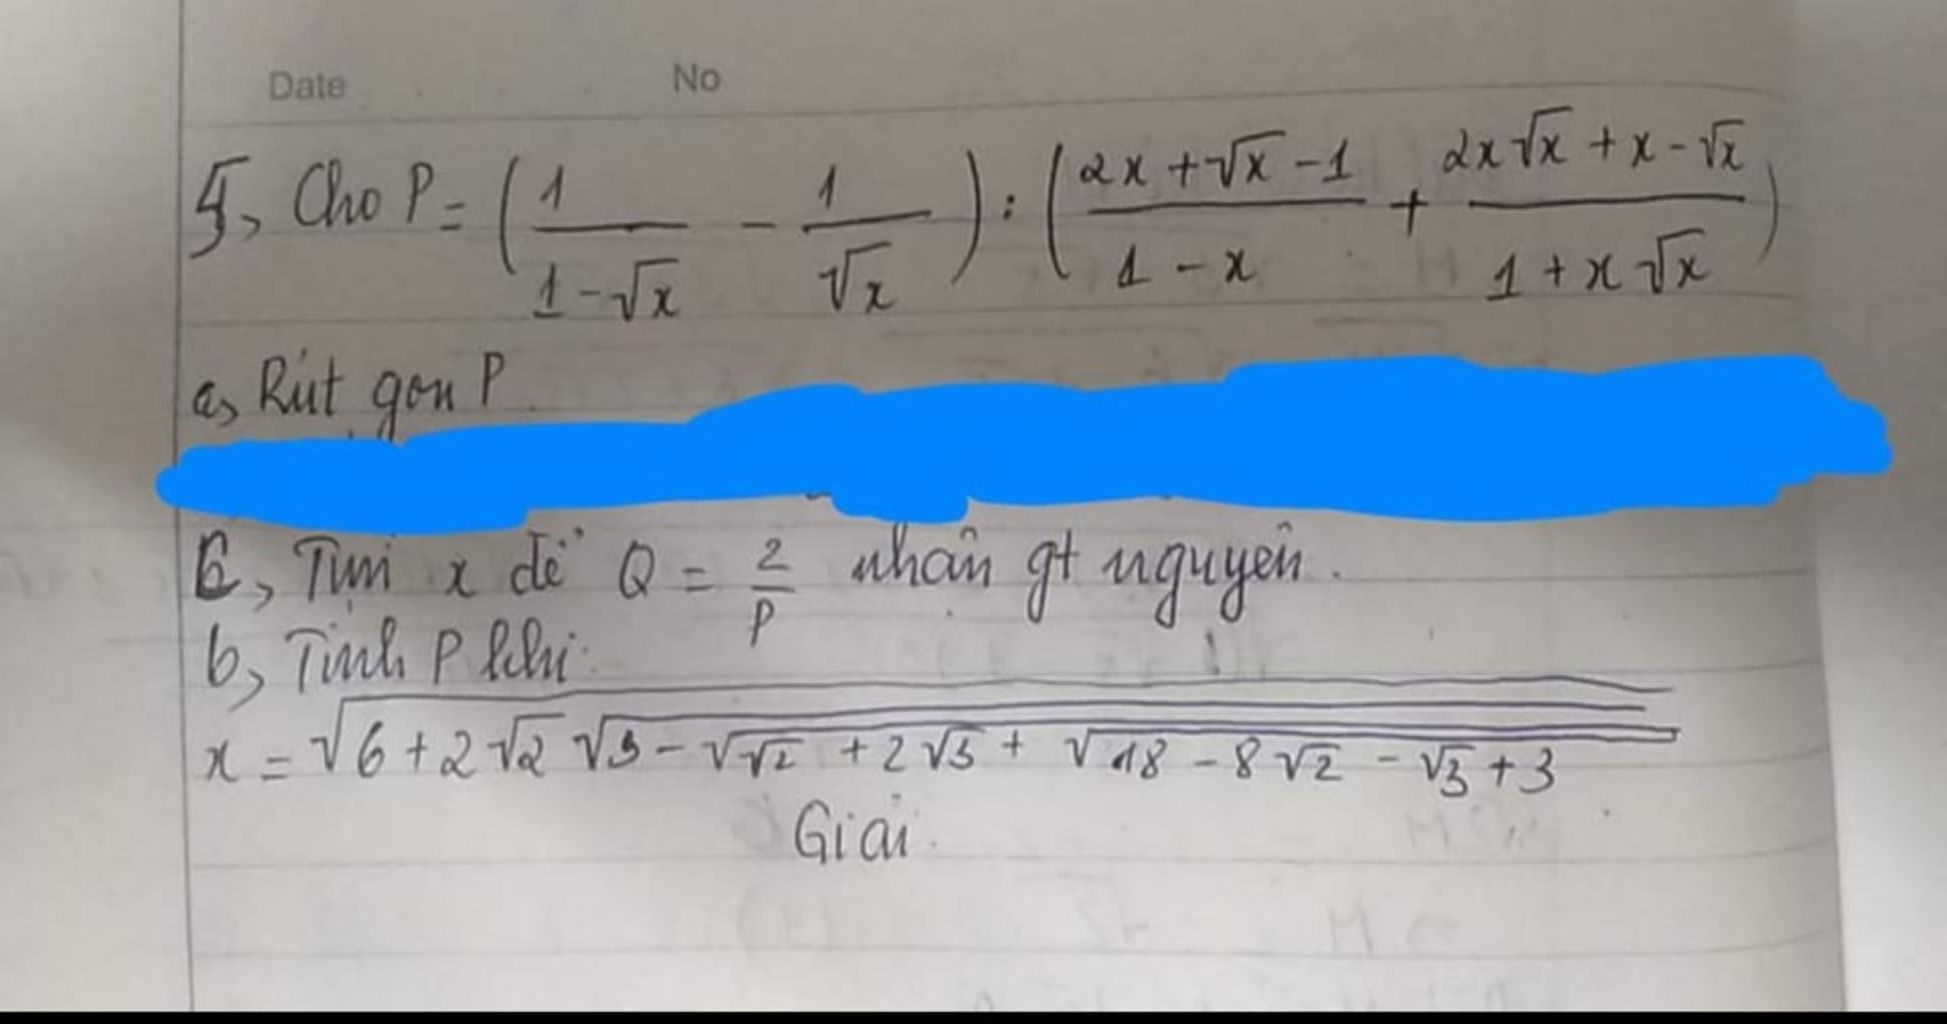 Date No
5, Cho P = (1/(1-√x) - 1/√x) : ((2x+√x-1)/(1-x) + (2x√x+x-√x)/(1+x√x))
a, Rút gọn P
c, Tìm x để Q = 2/P nhân gt nguyên.
b, Tính P khi
x = √6+2√2 √3-√√2 +2√3 + √18-8√2 -√3+3
Giải